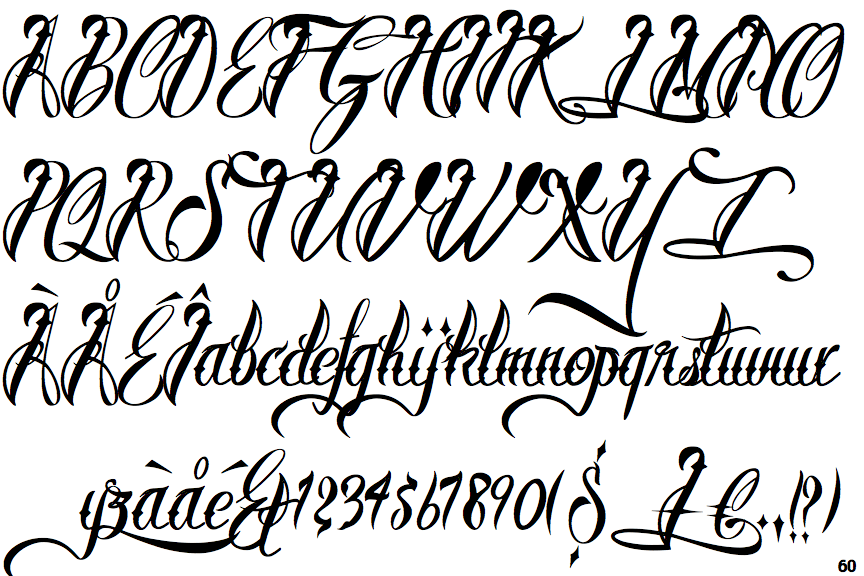 ABCDEFGHIJKLMNO
PQRSTUVWXYZ
ÀÅÉÎabcdefghijklmnopqrstuvwx
yzàåéê&1234567890($£€.,!?)
60